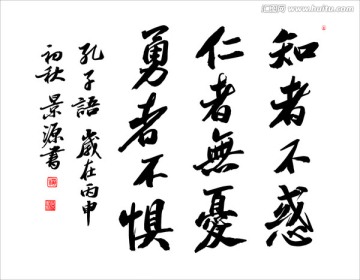 知者不惑
仁者無憂
勇者不懼
孔子語 歲在丙申
初秋 景源書
www.huitu.com